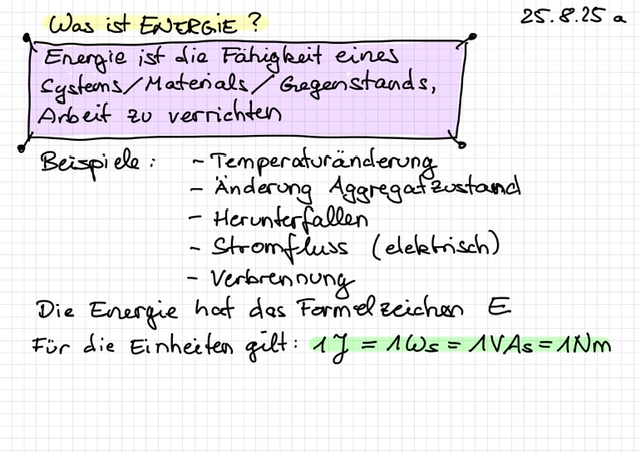 Was ist ENERGIE ?
25.8.25 a
Energie ist die Fähigkeit eines
Systems/Materials/Gegenstands,
Arbeit zu verrichten
Beispiele : - Temperaturänderung
- Änderung Aggregatzustand
- Herunterfallen
- Stromfluss (elektrisch)
- Verbrennung
Die Energie hat das Formelzeichen E
Für die Einheiten gilt: 1J = 1Ws = 1VAs = 1Nm